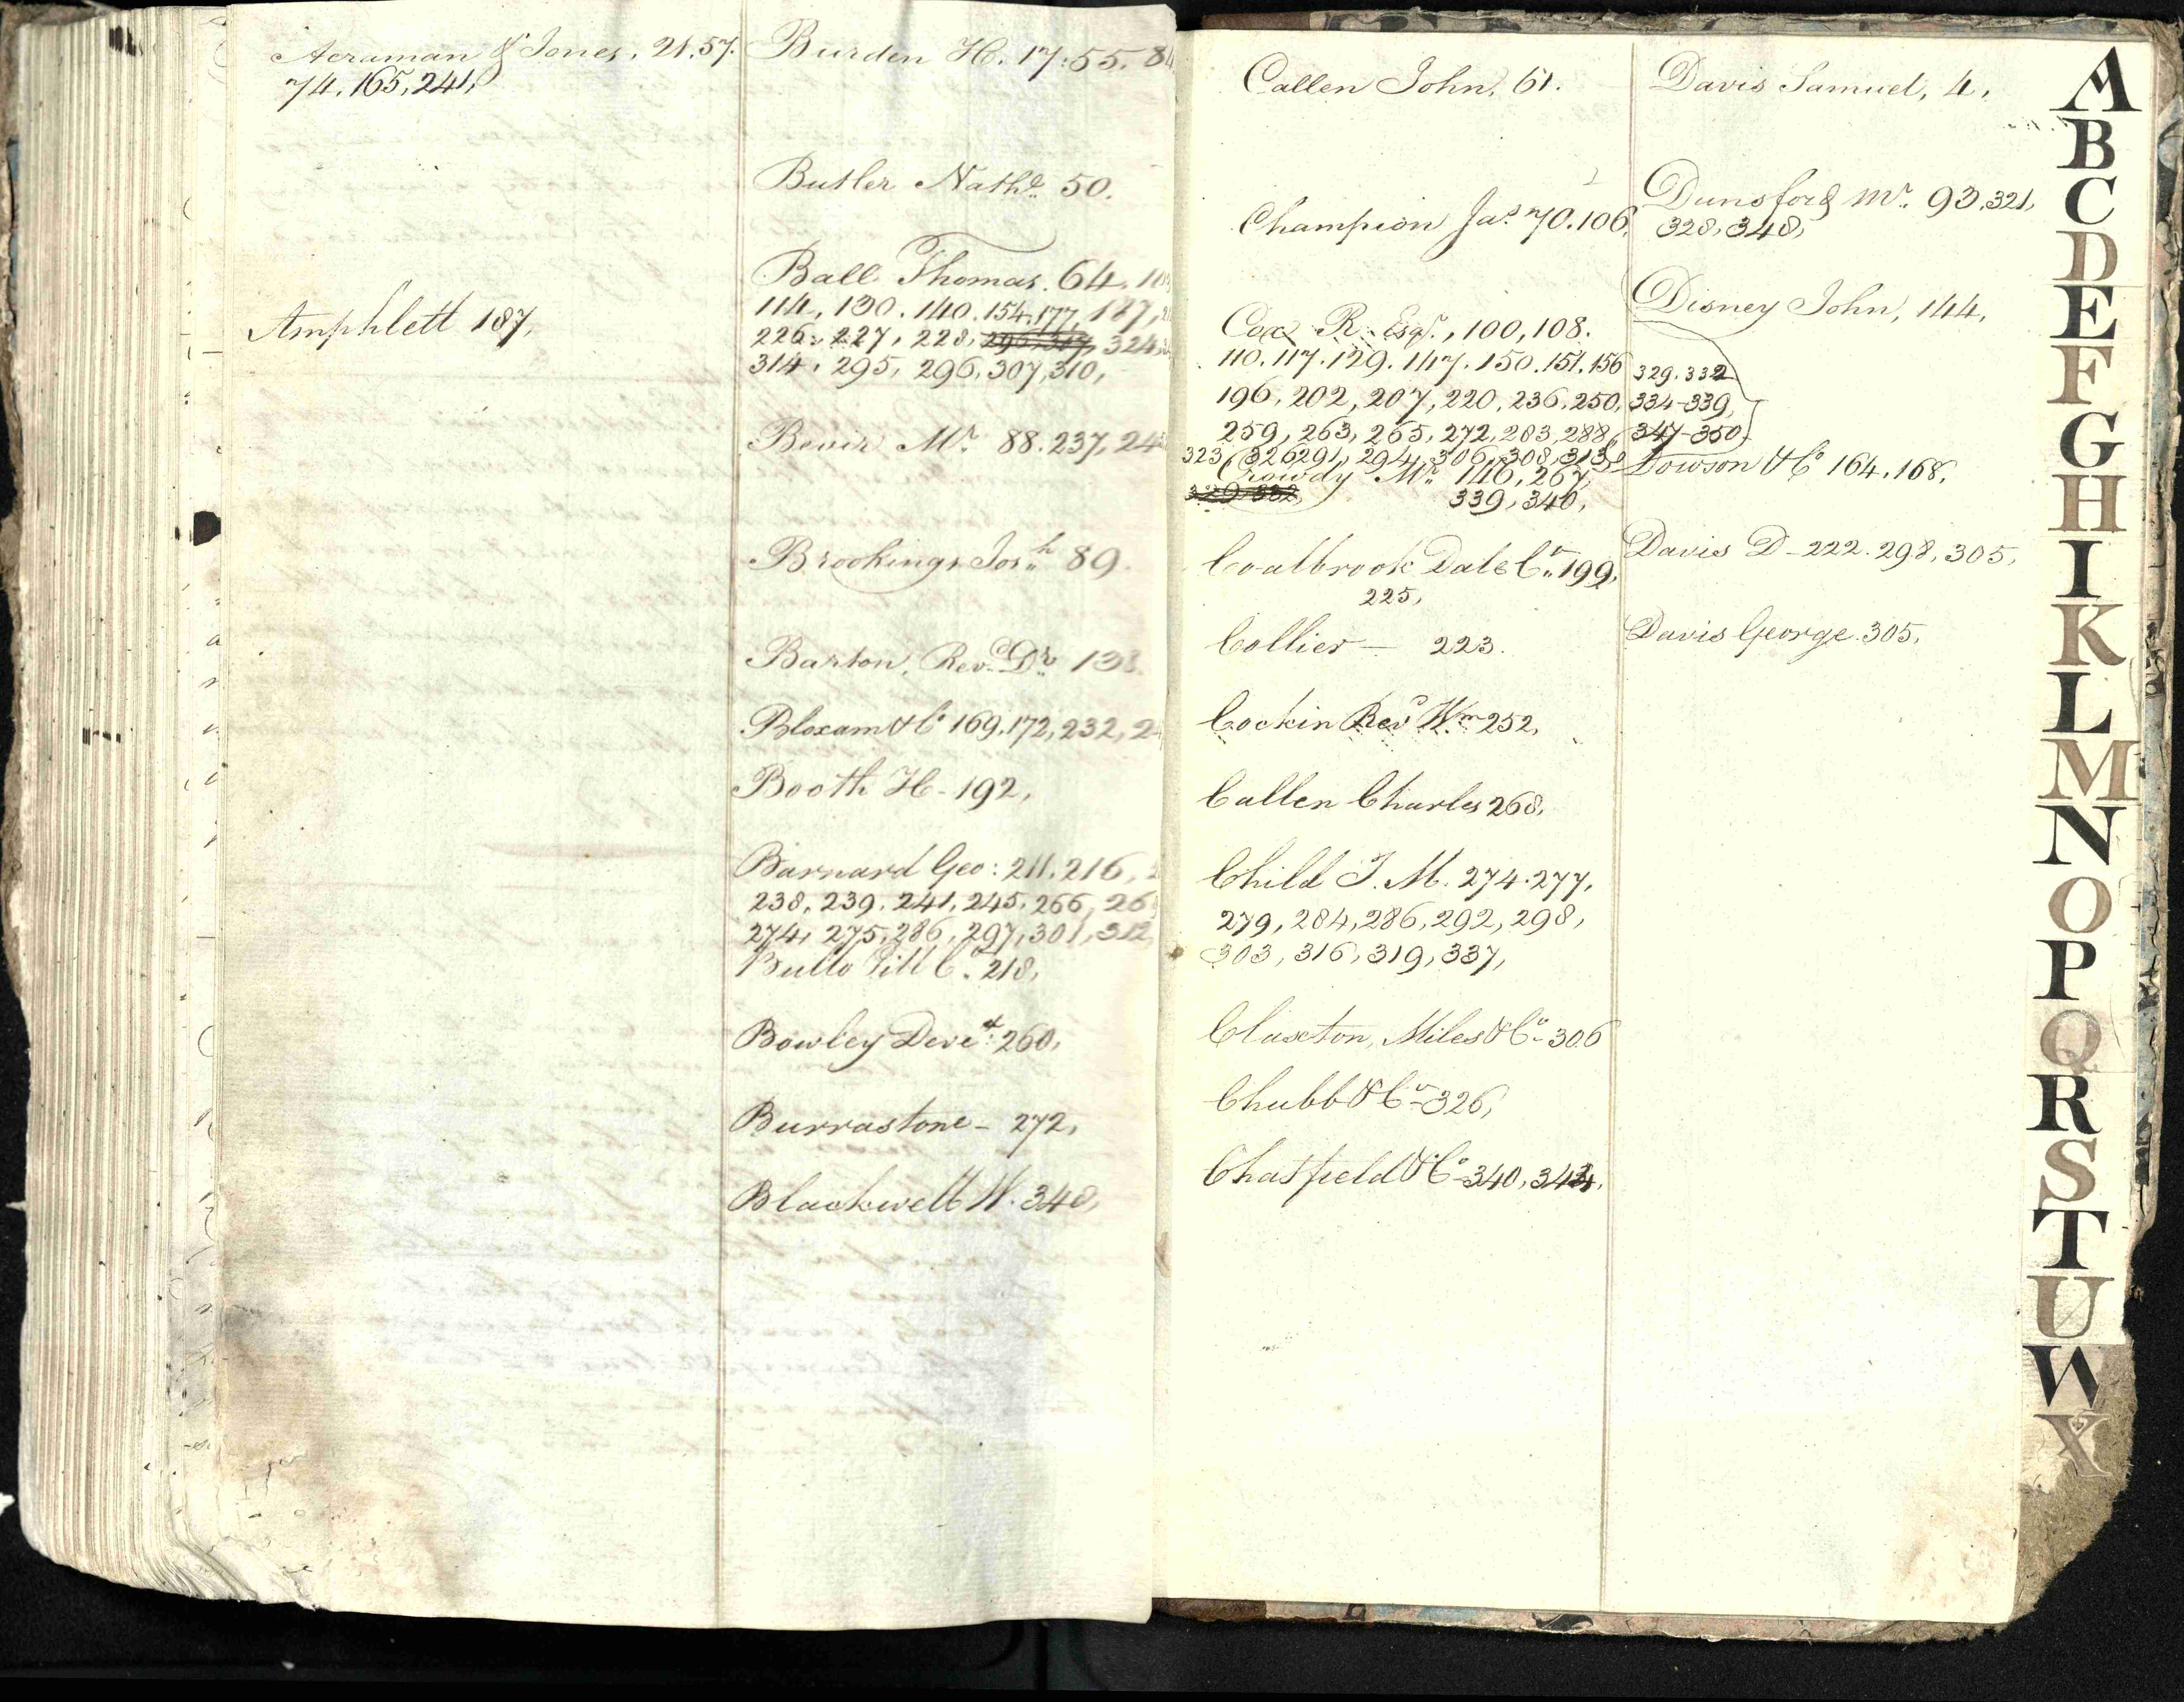 Acraman & Jones, 21.57.
74, 165, 241,
Amphlett 187,
Burden H. 17.55.
Butler Nathl. 50.
Ball Thomas. 64,
114, 130. 140. 154. 177, 187,
226, 227, 228, 296, 317, 324,
314, 295, 296, 307, 310,
Bevir Mr. 88. 237,
Brookings Josh. 89.
Barton, Revd. Dr. 138
Bloxam & Co 169, 172, 232,
Booth H - 192,
Barnard Geo: 211. 216,
238, 239. 241, 245, 266,
274, 275, 286, 297, 301, 312
Bullo Pill Co. 218,
Bowley 260,
Burrastone - 272,
Blackwell W. 348,
Callen John, 61.
Champion Jas. 70. 106,
Cox R. Esqr., 100, 108.
110. 117. 129. 147. 150. 151. 156
196, 202, 207, 220, 236, 250,
259, 263, 265, 272, 283, 288,
323, 326 291, 294, 306, 308, 313,
Crowdy Mr. 146, 267,
329, 332,
339, 340,
Coalbrook Dale Co. 199,
225,
Collier — 223.
Cockin Revd Wm 252,
Callen Charles 268,
Child J. M. 274. 277,
279, 284, 286, 292, 298,
303, 316, 319, 337,
Claxton, Miles & Co - 306
Chubb & Co - 326,
Chatfield & Co - 340,
Davis Samuel, 4,
Dunsford Mr. 93, 321,
328, 348,
Disney John, 144,
329. 332
334-339,
347-350
Dowson & Co 164. 168,
Davis D - 222. 298, 305,
Davis George. 305,
A
B
C
D
E
F
G
H
I
K
L
M
N
O
P
Q
R
S
T
U
W
X